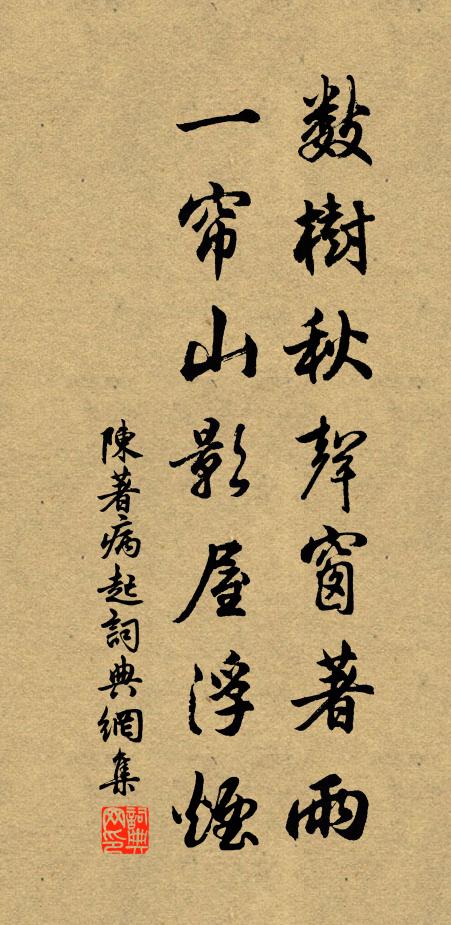 数樹秋聲窗著雨
一帘山影屋浮煙
陳著病起詞典網集
詞典网印